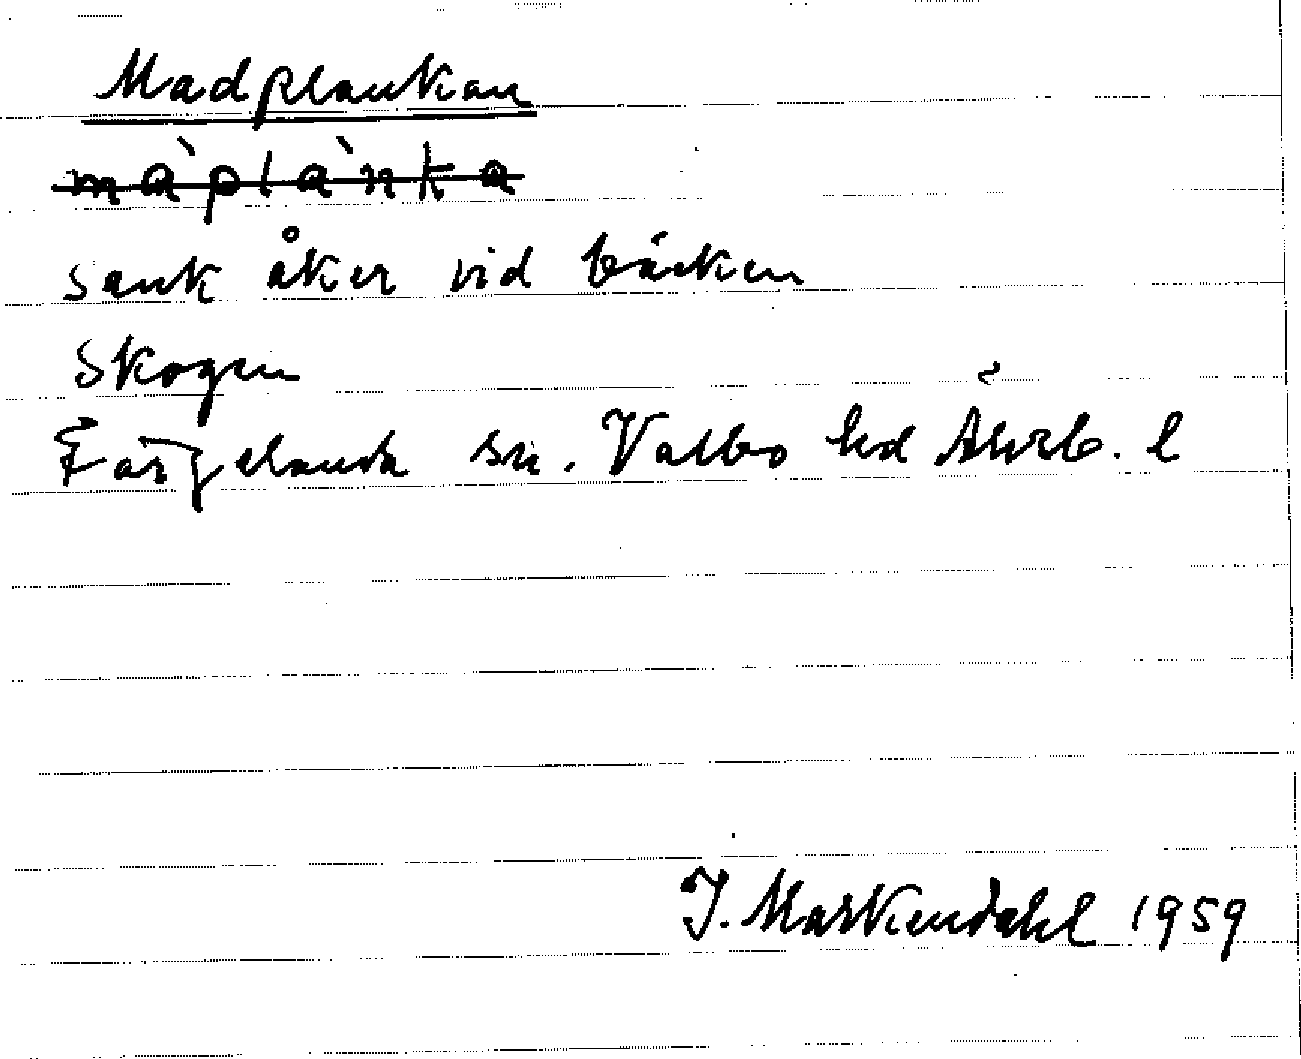 Madplankan
màplànka
sank åker vid bäcken
Skogen
Färgelanda sn. Valbo hd Älvsb. l
J. Markendahl 1959